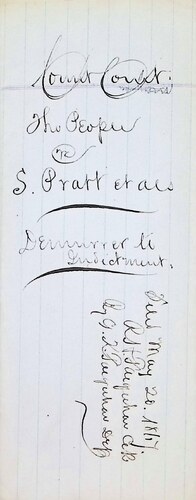 Court Court.
The People
vs
S. Pratt et als
Demurrer to
Indictment.
Filed May 20. 1857.
R. H. Farquhar Clk
By G. K. Farquhar Dep